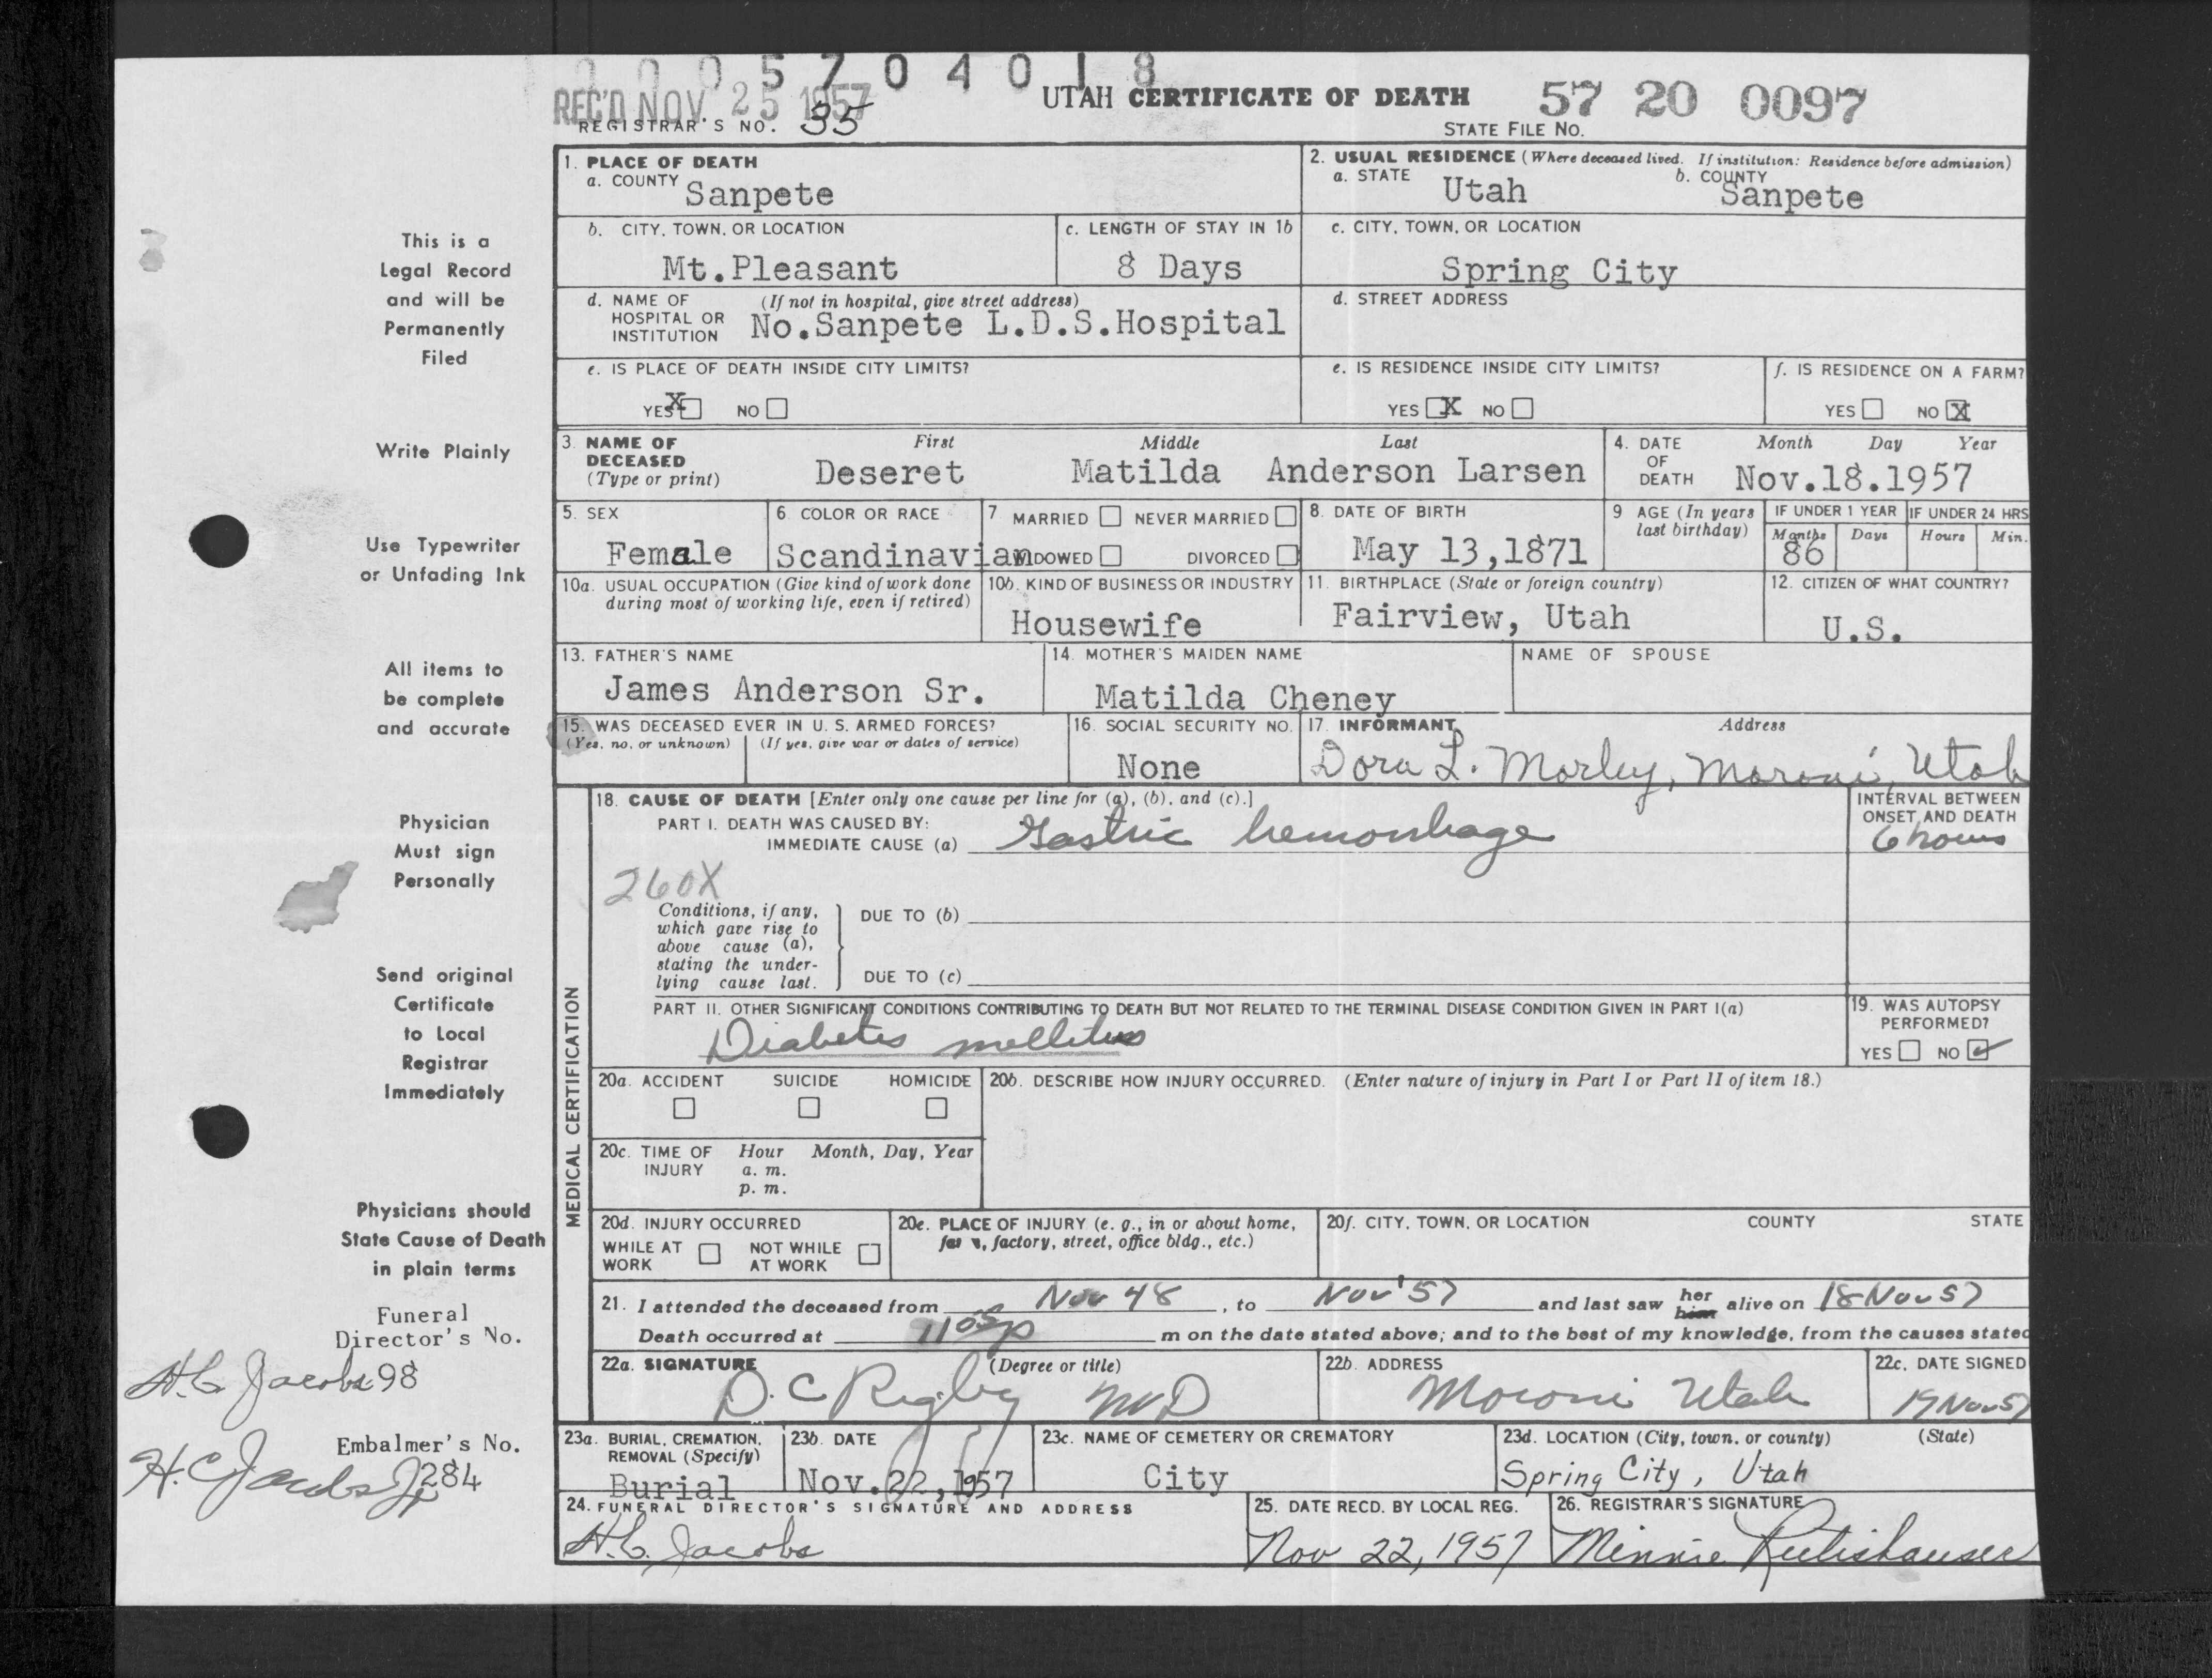 0 0 0 5 7 0 4 0 1 8
REC'D NOV 25 1957
UTAH CERTIFICATE OF DEATH
57 20 0097
REGISTRAR'S NO. 35
STATE FILE NO.
1. PLACE OF DEATH
a. COUNTY Sanpete
2. USUAL RESIDENCE (Where deceased lived. If institution: Residence before admission)
a. STATE Utah b. COUNTY Sanpete
b. CITY, TOWN, OR LOCATION Mt.Pleasant
c. LENGTH OF STAY IN 1b 8 Days
c. CITY, TOWN, OR LOCATION Spring City
d. NAME OF HOSPITAL OR INSTITUTION (If not in hospital, give street address) No.Sanpete L.D.S.Hospital
d. STREET ADDRESS
e. IS PLACE OF DEATH INSIDE CITY LIMITS?
YES X NO
e. IS RESIDENCE INSIDE CITY LIMITS?
YES X NO
f. IS RESIDENCE ON A FARM?
YES NO X
3. NAME OF DECEASED (Type or print)
First Middle Last
Deseret Matilda Anderson Larsen
4. DATE OF DEATH Month Day Year
Nov.18.1957
5. SEX Female
6. COLOR OR RACE Scandinavian
7 MARRIED NEVER MARRIED
WIDOWED DIVORCED
8. DATE OF BIRTH May 13,1871
9 AGE (In years last birthday)
IF UNDER 1 YEAR IF UNDER 24 HRS
Months Days Hours Min.
86
10a. USUAL OCCUPATION (Give kind of work done during most of working life, even if retired)
10b. KIND OF BUSINESS OR INDUSTRY Housewife
11. BIRTHPLACE (State or foreign country) Fairview, Utah
12. CITIZEN OF WHAT COUNTRY? U.S.
13. FATHER'S NAME James Anderson Sr.
14. MOTHER'S MAIDEN NAME Matilda Cheney
NAME OF SPOUSE
15. WAS DECEASED EVER IN U. S. ARMED FORCES?
(Yes, no, or unknown) (If yes, give war or dates of service)
16. SOCIAL SECURITY NO. None
17. INFORMANT Address
Dora L. Morley, Moroni, Utah
18. CAUSE OF DEATH [Enter only one cause per line for (a), (b), and (c).]
PART I. DEATH WAS CAUSED BY:
IMMEDIATE CAUSE (a) Gastric hemorrhage
INTERVAL BETWEEN ONSET AND DEATH
6 hours
260X
Conditions, if any, which gave rise to above cause (a), stating the underlying cause last.
DUE TO (b)
DUE TO (c)
PART II. OTHER SIGNIFICANT CONDITIONS CONTRIBUTING TO DEATH BUT NOT RELATED TO THE TERMINAL DISEASE CONDITION GIVEN IN PART I(a)
Diabetes mellitus
19. WAS AUTOPSY PERFORMED?
YES NO ✓
MEDICAL CERTIFICATION
20a. ACCIDENT SUICIDE HOMICIDE
20b. DESCRIBE HOW INJURY OCCURRED. (Enter nature of injury in Part I or Part II of item 18.)
20c. TIME OF INJURY Hour Month, Day, Year
a. m.
p. m.
20d. INJURY OCCURRED
WHILE AT WORK NOT WHILE AT WORK
20e. PLACE OF INJURY (e. g., in or about home, farm, factory, street, office bldg., etc.)
20f. CITY, TOWN, OR LOCATION COUNTY STATE
21. I attended the deceased from Nov 48, to Nov '57 and last saw her him alive on 18 Nov 57
Death occurred at 1105p m on the date stated above; and to the best of my knowledge, from the causes stated
22a. SIGNATURE (Degree or title)
D. C Rigby MD
22b. ADDRESS Moroni Utah
22c. DATE SIGNED 19 Nov 57
23a. BURIAL, CREMATION, REMOVAL (Specify) Burial
23b. DATE Nov.22,1957
23c. NAME OF CEMETERY OR CREMATORY City
23d. LOCATION (City, town, or county) (State)
Spring City, Utah
24. FUNERAL DIRECTOR'S SIGNATURE AND ADDRESS
H.C. Jacobs
25. DATE RECD. BY LOCAL REG.
Nov 22, 1957
26. REGISTRAR'S SIGNATURE
Minnie Rutishauser
This is a
Legal Record
and will be
Permanently
Filed
Write Plainly
Use Typewriter
or Unfading Ink
All items to
be complete
and accurate
Physician
Must sign
Personally
Send original
Certificate
to Local
Registrar
Immediately
Physicians should
State Cause of Death
in plain terms
Funeral
Director's No.
H.C. Jacobs 98
Embalmer's No.
H.C. Jacobs Jr 284